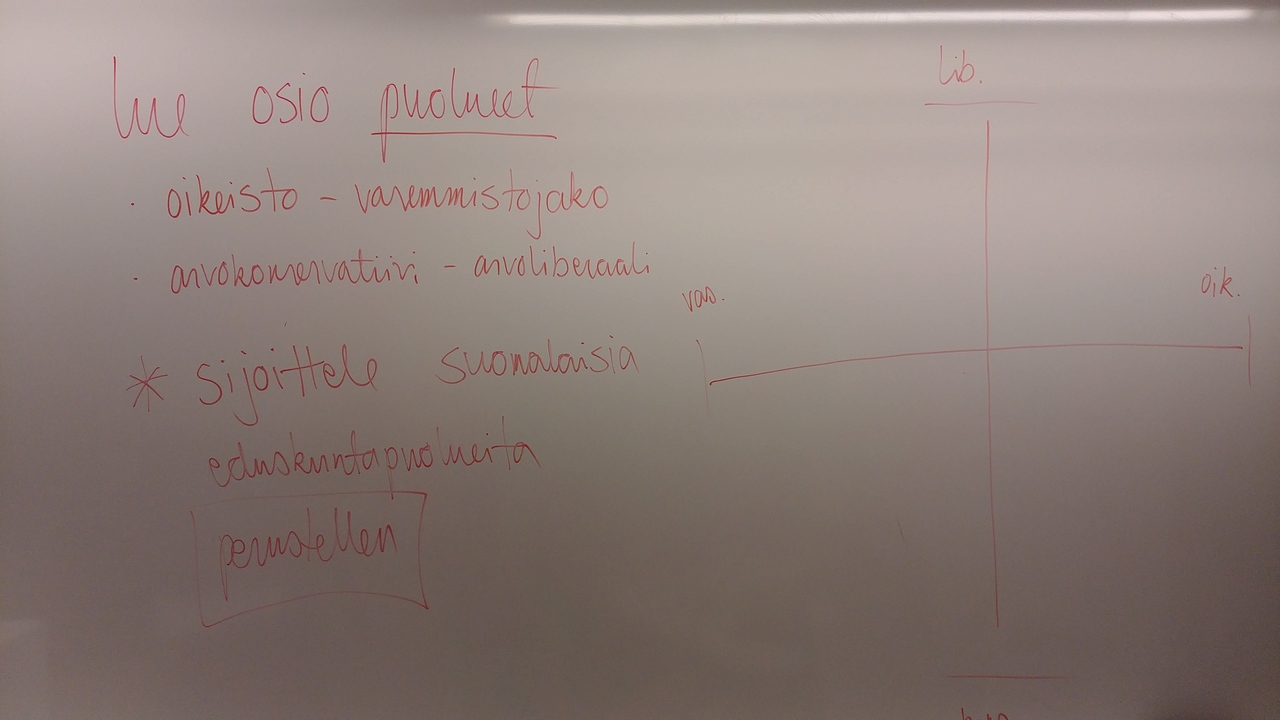 lue osio puolueet
· oikeisto - vasemmistojako
· arvokonservatiivi - arvoliberaali
* sijoittele suomalaisia
eduskuntapuolueita
perustellen
lib.
vas.
oik.